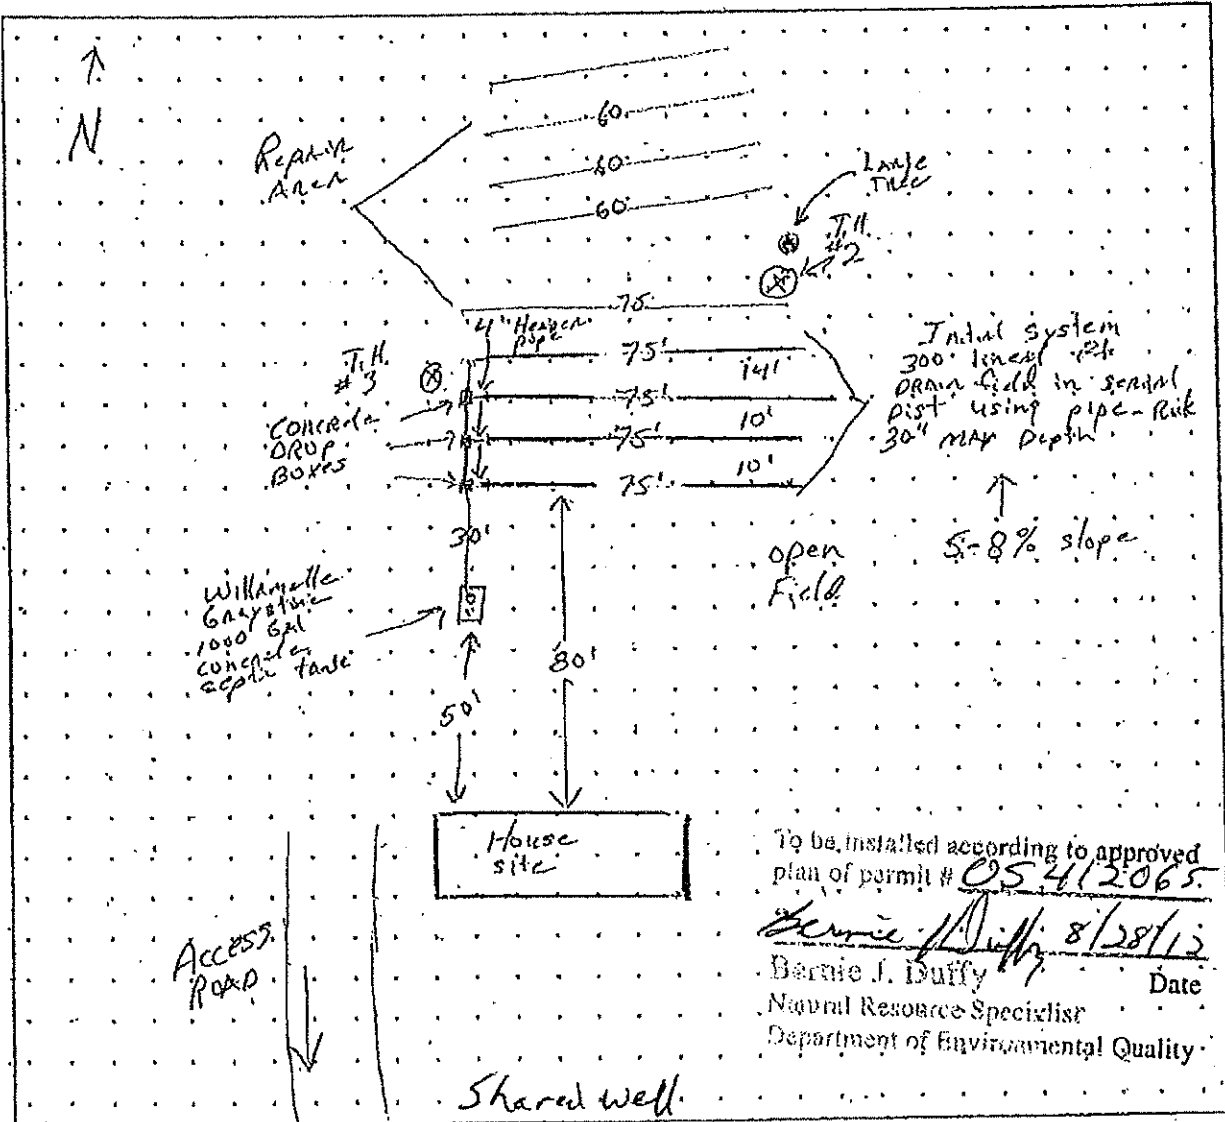 N
Repair
Area
60
60
60
Large
Tree
T.H.
#2
75
4" Header
pipe
T.H.
#3
75'
14'
75'
10'
75'
10'
75'
Concrete
DROP
Boxes
Initial system
300' lineal
DRAIN field in serial
Dist using pipe-
30" MAX Depth
5-8% slope
30'
open
Field
Willamette
Graystone
1000 Gal
concrete
septic tank
80'
50'
House
site
Access
ROAD
Shared well
To be installed according to approved
plan of permit # OS 412065
Bernie J Duffy 8/28/12
Bernie J. Duffy Date
Natural Resource Specialist
Department of Environmental Quality